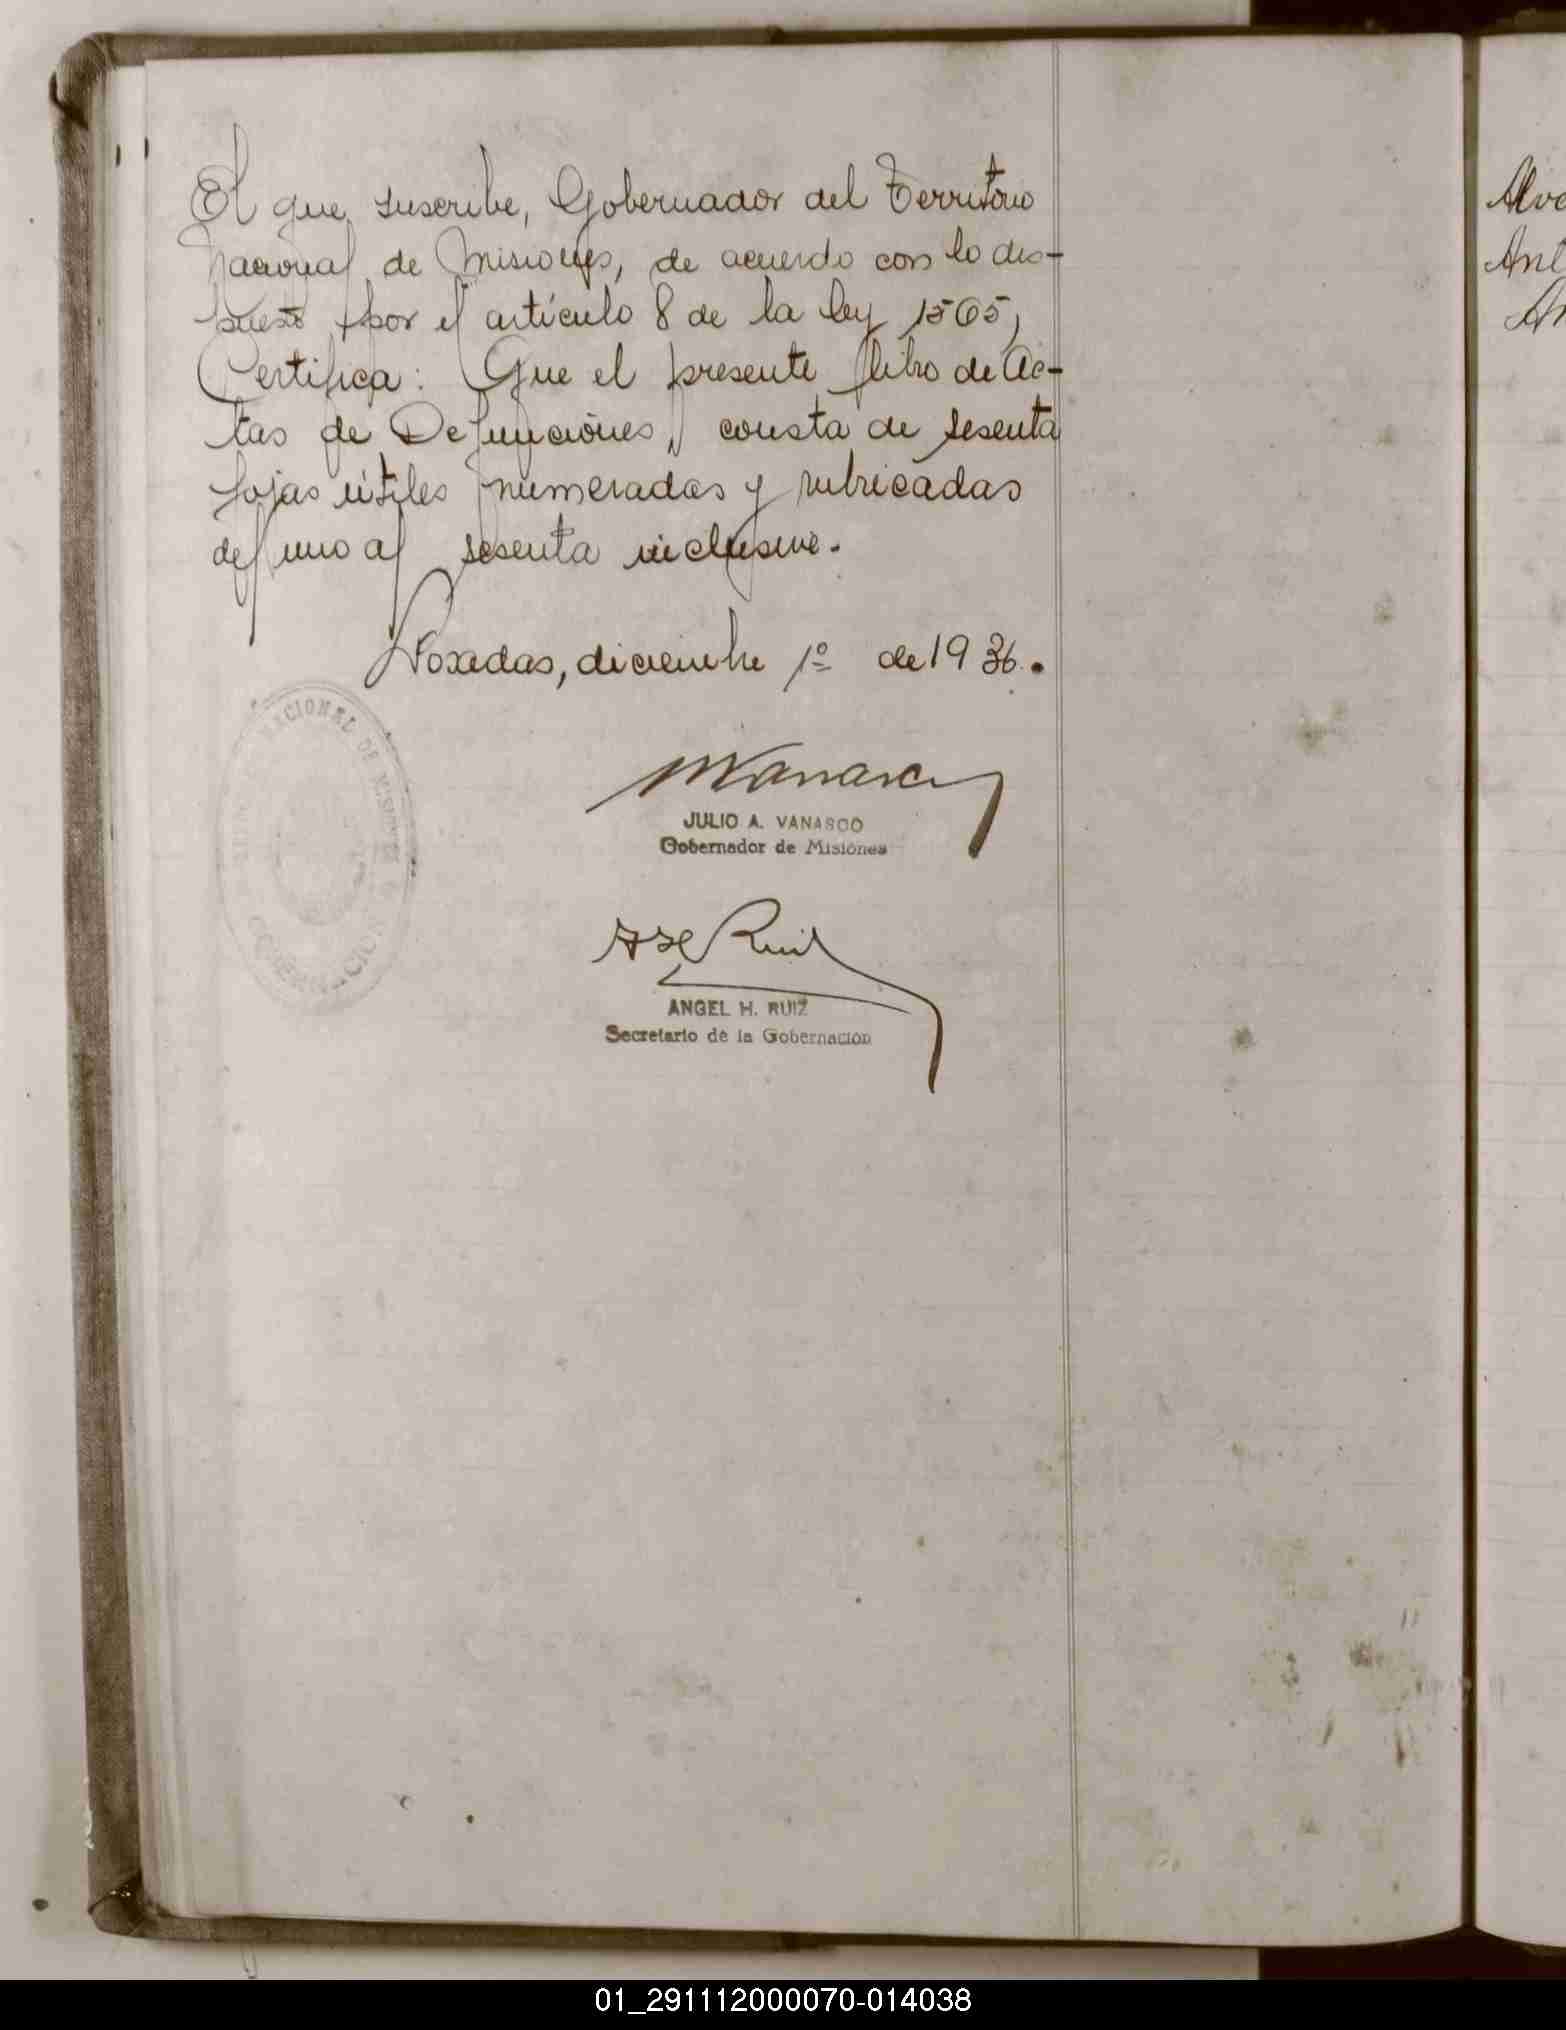 El que suscribe, Gobernador del Territorio
Nacional de Misiones, de acuerdo con lo dis-
puesto por el artículo 8 de la ley 1565,
Certifica: Que el presente libro de Ac-
tas de Defunciones, consta de sesenta
fojas útiles numeradas y rubricadas
del uno al sesenta inclusive.
Posadas, diciembre 1º de 1936.
NACIONAL DE MISIONES
GOBERNACION
JULIO A. VANASCO
Gobernador de Misiones
Ruiz
ANGEL H. RUIZ
Secretario de la Gobernación
Ant
01_291112000070-014038